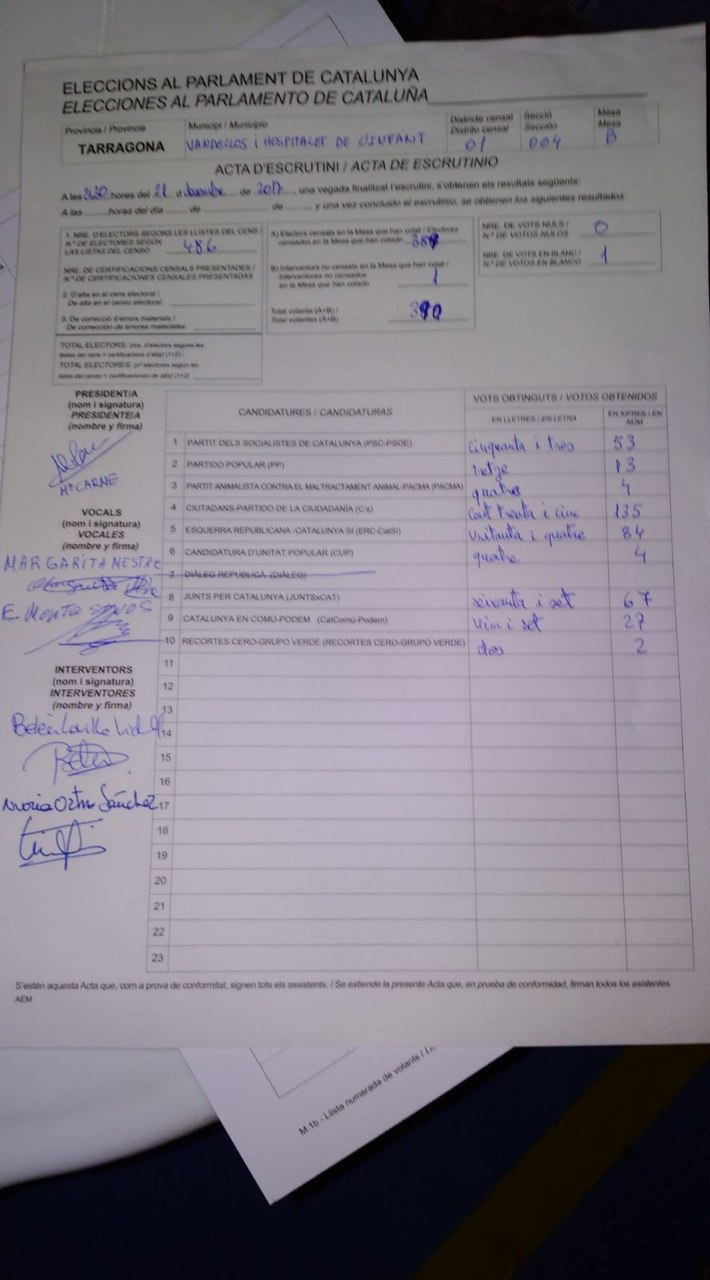 ELECCIONS AL PARLAMENT DE CATALUNYA
ELECCIONES AL PARLAMENTO DE CATALUÑA
Província / Provincia
TARRAGONA
Municipi / Municipio
VANDELLOS i HOSPITALET DE L'INFANT
Districte censal
Distrito censal
01
Secció
Sección
004
Mesa
Mesa
B
ACTA D'ESCRUTINI / ACTA DE ESCRUTINIO
A les hores del 21 d de 2017, una vegada finalitzat l'escrutini, s'obtenen els resultats següents:
A las horas del día de de y una vez concluido el escrutinio, se obtienen los siguientes resultados:
1. NRE. D'ELECTORS SEGONS LES LLISTES DEL CENS /
N.º DE ELECTORES SEGÚN
LAS LISTAS DEL CENSO 486
NRE. DE CERTIFICACIONS CENSALS PRESENTADES /
N.º DE CERTIFICACIONES CENSALES PRESENTADAS
2. D'alta en el cens electoral /
De alta en el censo electoral
3. De correcció d'errors materials /
De corrección de errores materiales
TOTAL ELECTORS: (nre. d'electors segons les
llistes del cens + certificacions d'alta) (1+2) /
TOTAL ELECTORES: (nº electores según las
listas del censo + certificaciones de alta) (1+2)
A) Electors censats en la Mesa que han votat / Electores
censados en la Mesa que han votado
B) Interventors no censats en la Mesa que han votat /
Interventores no censados
en la Mesa que han votado 1
Total votants (A+B) /
Total votantes (A+B) 390
NRE. DE VOTS NULS /
N.º DE VOTOS NULOS 0
NRE. DE VOTS EN BLANC /
N.º DE VOTOS EN BLANCO 1
PRESIDENT/A
(nom i signatura)
PRESIDENTE/A
(nombre y firma)
Mª CARNE
VOCALS
(nom i signatura)
VOCALES
(nombre y firma)
MARGARITA MESTRE
INTERVENTORS
(nom i signatura)
INTERVENTORES
(nombre y firma)
CANDIDATURES / CANDIDATURAS
VOTS OBTINGUTS / VOTOS OBTENIDOS
EN LLETRES / EN LETRA
EN XIFRES / EN NÚM.
1 PARTIT DELS SOCIALISTES DE CATALUNYA (PSC-PSOE) Cinquanta i tres 53
2 PARTIDO POPULAR (PP) tretze 13
3 PARTIT ANIMALISTA CONTRA EL MALTRACTAMENT ANIMAL-PACMA (PACMA) quatre 4
4 CIUTADANS-PARTIDO DE LA CIUDADANÍA (C's) Cent trenta i cinc 135
5 ESQUERRA REPUBLICANA -CATALUNYA SÍ (ERC-CatSí) Vuitanta i quatre 84
6 CANDIDATURA D'UNITAT POPULAR (CUP) quatre 4
7 DIÀLEG REPUBLICÀ (DIÀLEG)
8 JUNTS PER CATALUNYA (JUNTSxCAT) xixanta i set 67
9 CATALUNYA EN COMÚ-PODEM (CatComú-Podem) Vin i set 27
10 RECORTES CERO-GRUPO VERDE (RECORTES CERO-GRUPO VERDE) dos 2
11
12
13
14
15
16
17
18
19
20
21
22
23
S'estén aquesta Acta que, com a prova de conformitat, signen tots els assistents. / Se extiende la presente Acta que, en prueba de conformidad, firman todos los asistentes.
AEM
M.1b - Llista numerada de votants /